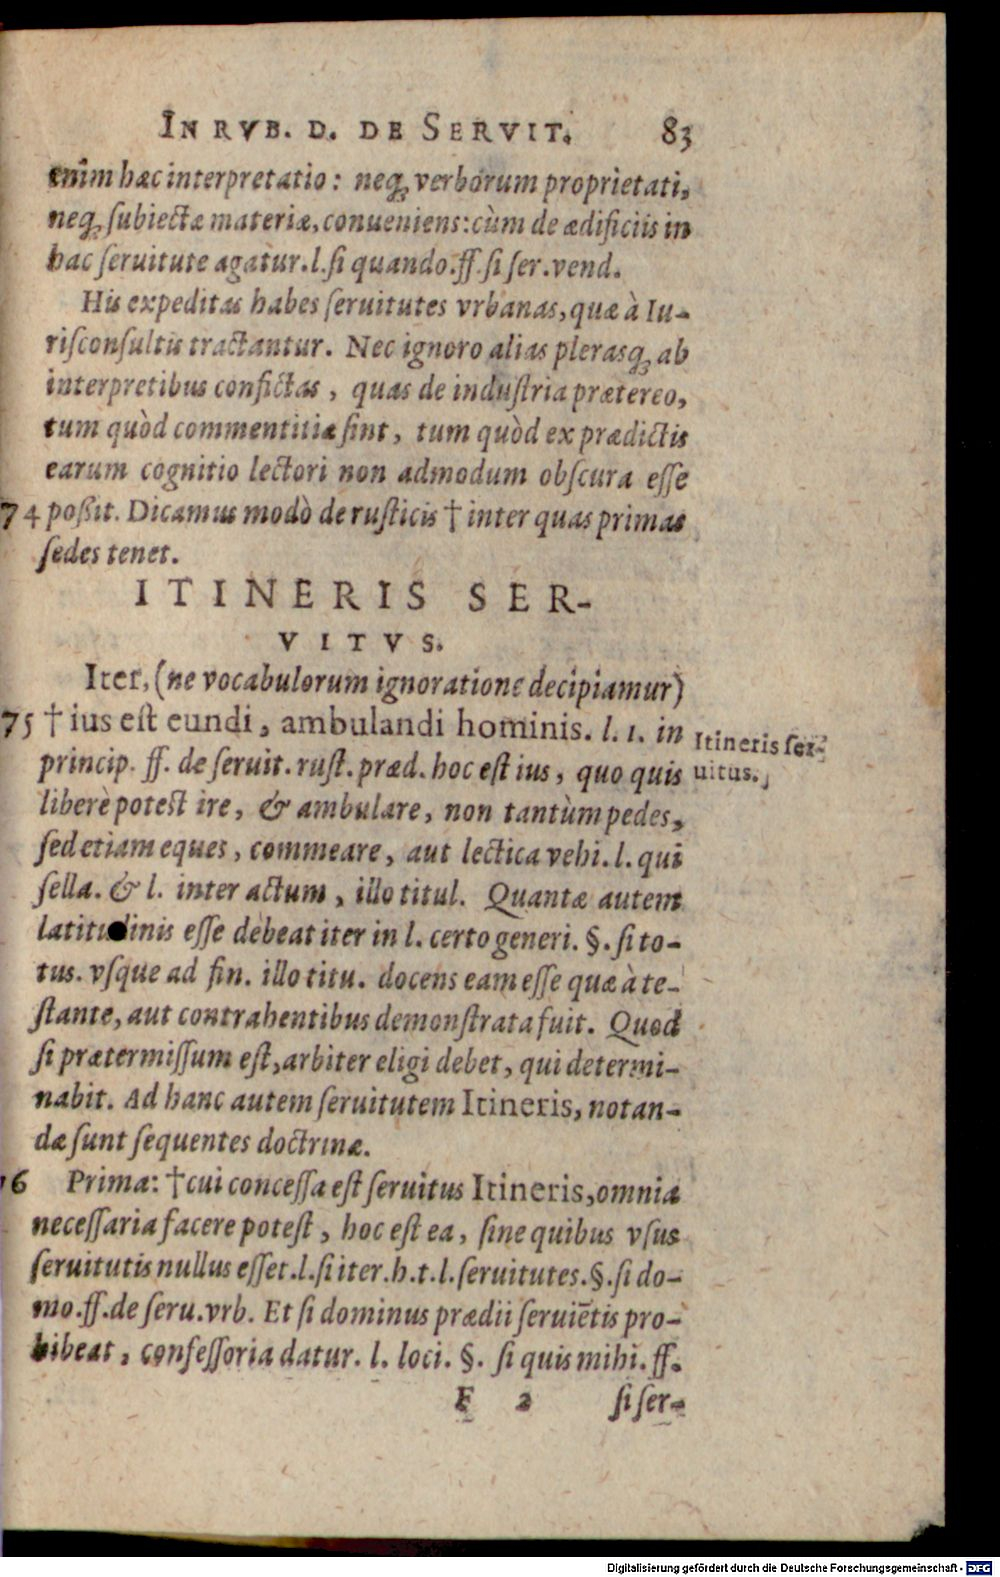 IN RVB. D. DE SERVIT. 83
enim hæc interpretatio: neq; verborum proprietati,
neq; subiectæ materiæ, conueniens: cùm de ædificiis in
hac seruitute agatur. l. si quando. ff. si ser. vend.
His expeditas habes seruitutes vrbanas, quæ à Iu-
risconsultis tractantur. Nec ignoro alias plerasq; ab
interpretibus confictas, quas de industria prætereo,
tum quòd commentitiæ sint, tum quòd ex prædictis
earum cognitio lectori non admodum obscura esse
74 poßit. Dicamus modò de rusticis † inter quas primas
sedes tenet.
ITINERIS SER-
VITVS.
Iter, (ne vocabulorum ignoratione decipiamur)
75 † ius est eundi, ambulandi hominis. l. 1. in
princip. ff. de seruit. rust. præd. hoc est ius, quo quis
liberè potest ire, & ambulare, non tantùm pedes,
sed etiam eques, commeare, aut lectica vehi. l. qui
sella. & l. inter actum, illo titul. Quantæ autem
latitudinis esse debeat iter in l. certo generi. §. si to-
tus. vsque ad fin. illo titu. docens eam esse quæ à te-
stante, aut contrahentibus demonstrata fuit. Quod
si prætermissum est, arbiter eligi debet, qui determi-
nabit. Ad hanc autem seruitutem Itineris, notan-
dæ sunt sequentes doctrinæ.
76 Prima: † cui concessa est seruitus Itineris, omnia
necessaria facere potest, hoc est ea, sine quibus vsus
seruitutis nullus esset. l. si iter. h. t. l. seruitutes. §. si do-
mo. ff. de seru. vrb. Et si dominus prædii seruiētis pro-
hibeat, confessoria datur. l. loci. §. si quis mihi. ff.
F 2 si ser-
Itineris ser-
uitus.
Digitalisierung gefördert durch die Deutsche Forschungsgemeinschaft - DFG